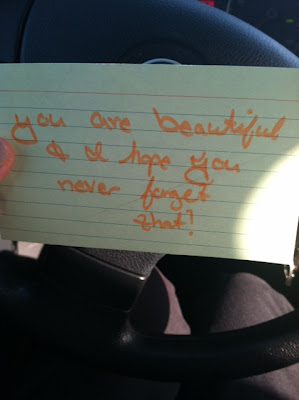 you are beautiful
& I hope you
never forget
that!